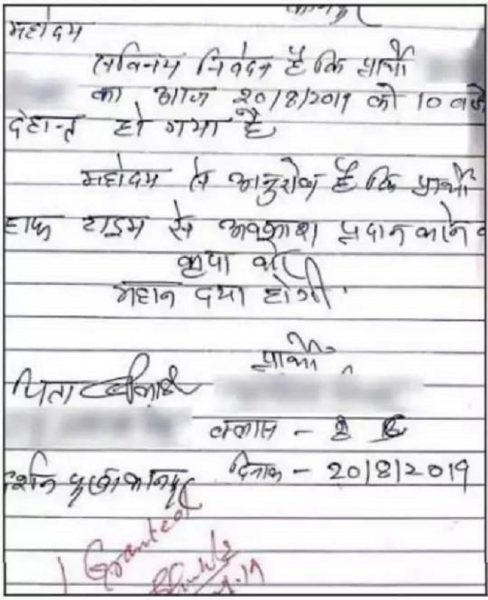 महोदय
सविनय निवेदन है कि प्रार्थी
का आज 20/8/2019 को 10 बजे
देहान्त हो गया है
महोदय से अनुरोध है कि प्रार्थी
हाफ टाइम से अवकाश प्रदान करने
कृपा करे
महान दया होगी.
प्रार्थी
पिता
क्लास - 8
दिनांक - 20/8/2019
Granted